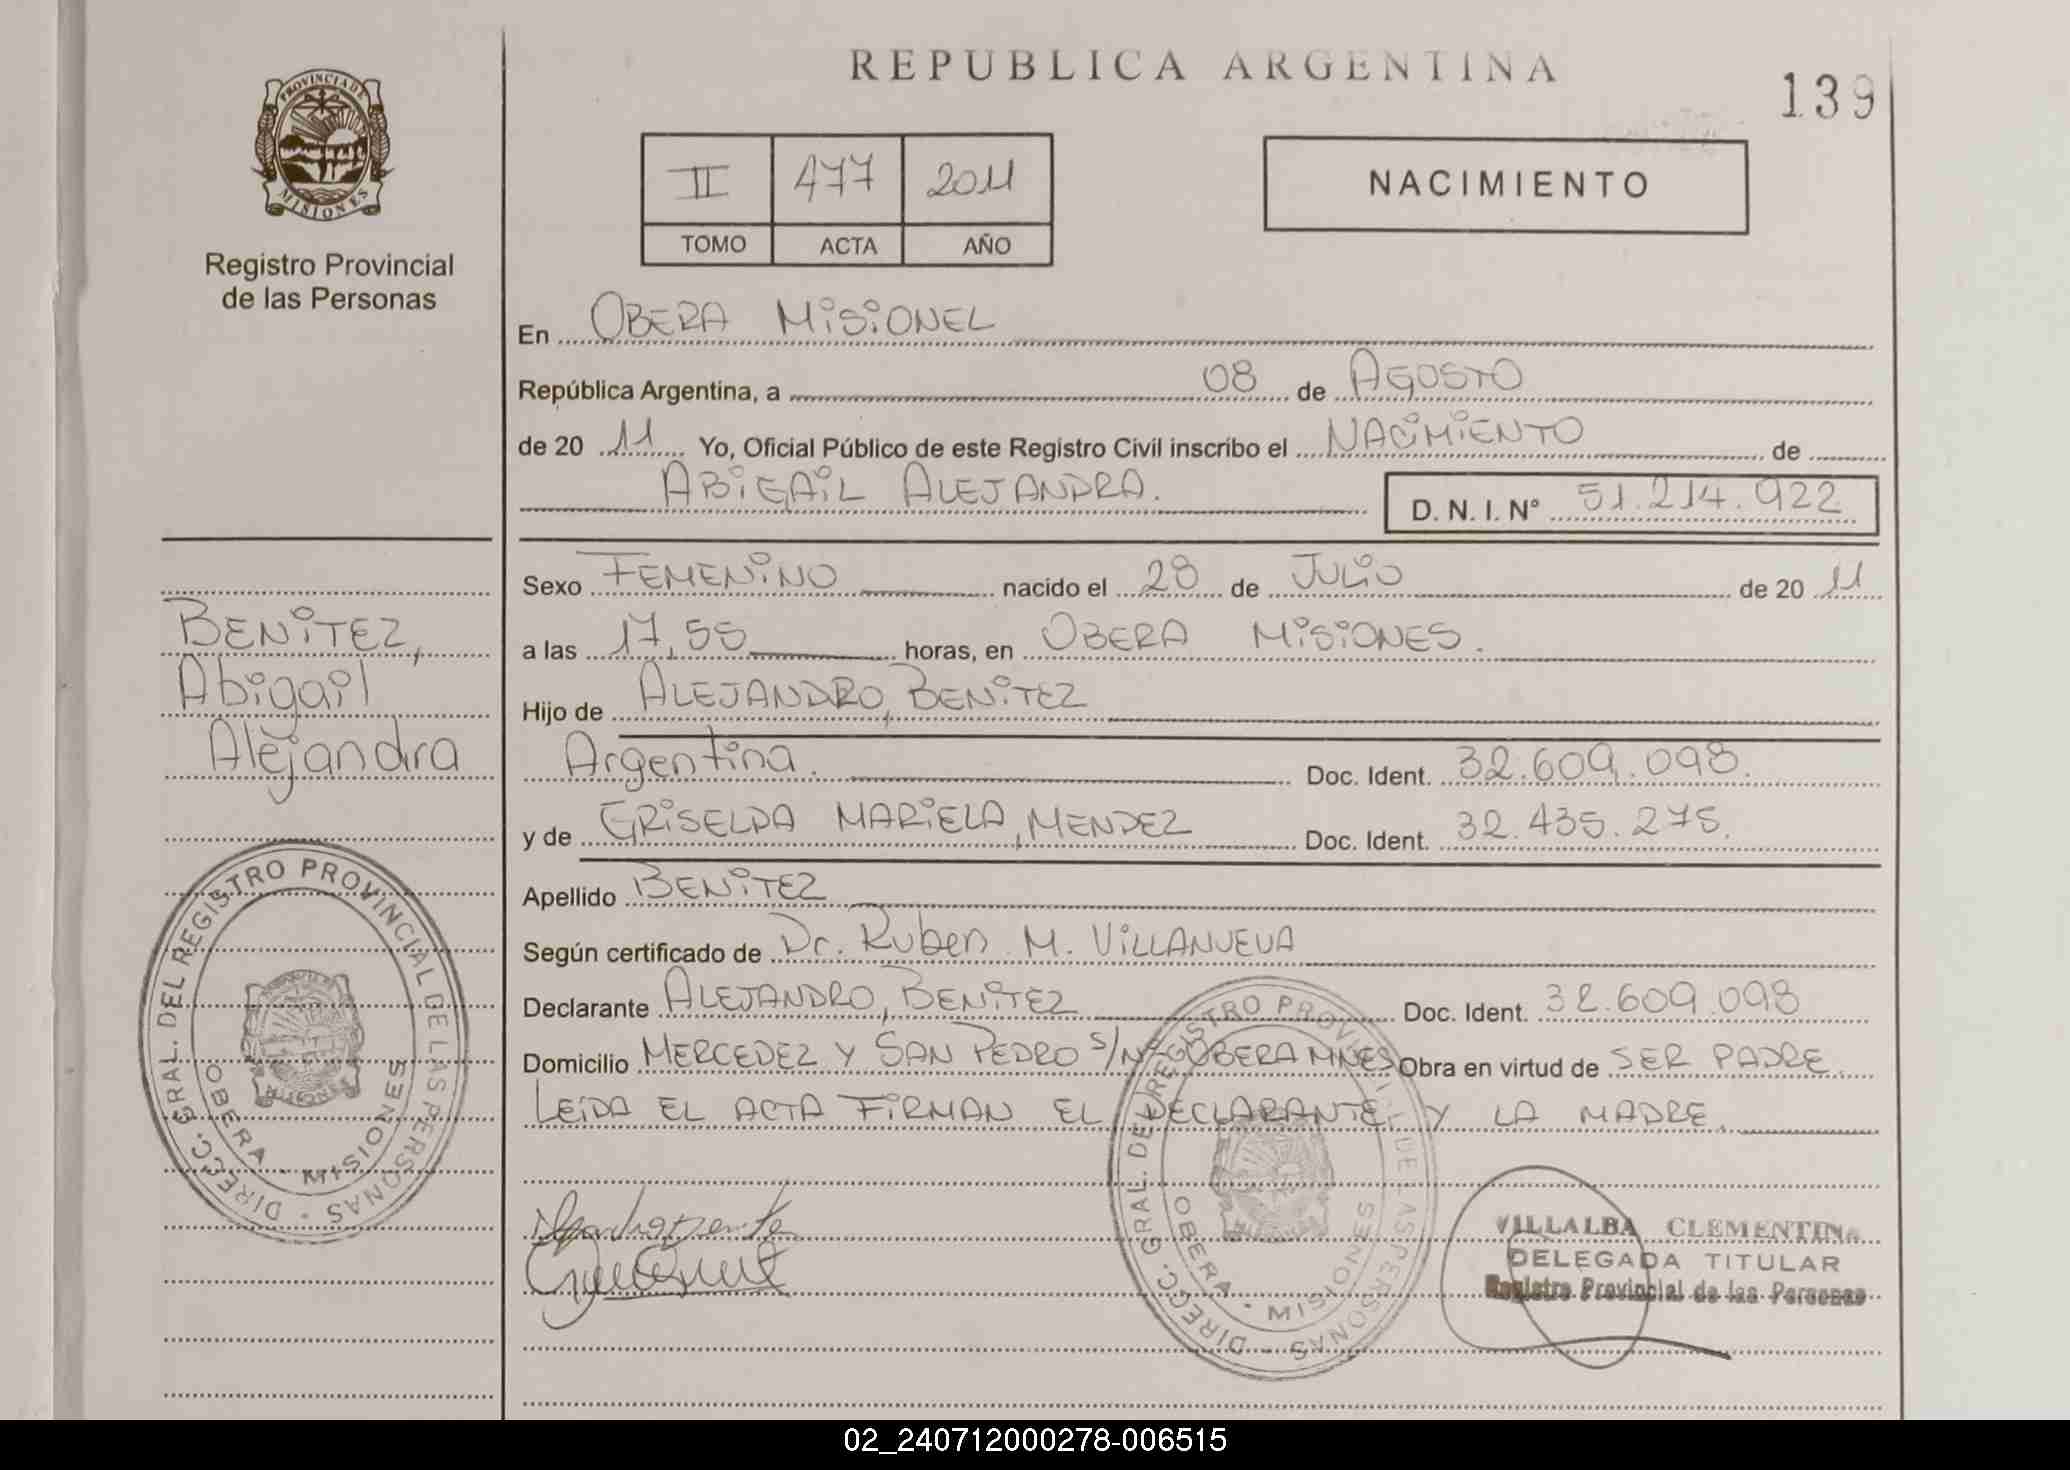 PROVINCIA DE
MISIONES
Registro Provincial
de las Personas
REPUBLICA ARGENTINA
139
II 477 2011
TOMO ACTA AÑO
NACIMIENTO
En OBERA MISIONEL
República Argentina, a 08 de AGOSTO
de 20 11 Yo, Oficial Público de este Registro Civil inscribo el NACIMIENTO de
ABIGAIL ALEJANDRA.
D. N. I. Nº 51.214.922
Sexo FEMENINO nacido el 28 de JULIO de 20 11
a las 17,55 horas, en OBERA MISIONES.
Hijo de ALEJANDRO, BENITEZ
Argentina. Doc. Ident. 32.609.098.
y de GRISELDA MARIELA, MENDEZ Doc. Ident. 32.435.275.
Apellido BENITEZ
Según certificado de Dr. Ruben M. VILLANUEVA
Declarante ALEJANDRO, BENITEZ Doc. Ident. 32.609.098
Domicilio MERCEDEZ Y SAN PEDRO S/Nº OBERA MNES Obra en virtud de SER PADRE.
LEIDA EL ACTA FIRMAN EL DECLARANTE Y LA MADRE.
BENITEZ,
Abigail
Alejandra
DIRECC. GRAL. DEL REGISTRO PROVINCIAL DE LAS PERSONAS
OBERA - MISIONES
DIRECC. GRAL. DEL REGISTRO PROVINCIAL DE LAS PERSONAS
OBERA - MISIONES
VILLALBA CLEMENTINA
DELEGADA TITULAR
Registro Provincial de las Personas
02_240712000278-006515